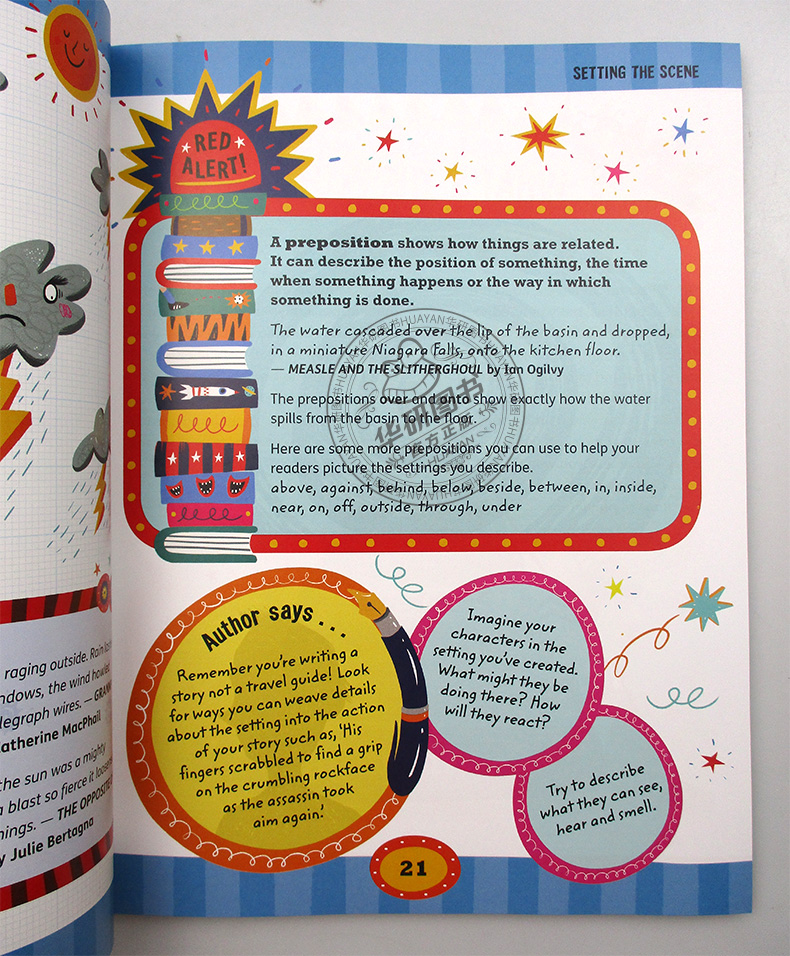 SETTING THE SCENE
RED
ALERT!
A preposition shows how things are related.
It can describe the position of something, the time
when something happens or the way in which
something is done.
The water cascaded over the lip of the basin and dropped,
in a miniature Niagara Falls, onto the kitchen floor.
— MEASLE AND THE SLITHERGHOUL by Ian Ogilvy
The prepositions over and onto show exactly how the water
spills from the basin to the floor.
Here are some more prepositions you can use to help your
readers picture the settings you describe.
above, against, behind, below, beside, between, in, inside,
near, on, off, outside, through, under
华研图书
官方正版
Author says . . .
Remember you're writing a
story not a travel guide! Look
for ways you can weave details
about the setting into the action
of your story such as, 'His
fingers scrabbled to find a grip
on the crumbling rockface
as the assassin took
aim again.'
Imagine your
characters in the
setting you've created.
What might they be
doing there? How
will they react?
Try to describe
what they can see,
hear and smell.
raging outside. Rain
the wind
wires. —
MacPhail
the sun was a mighty
a blast so fierce it
— THE
Julie Bertagna
21